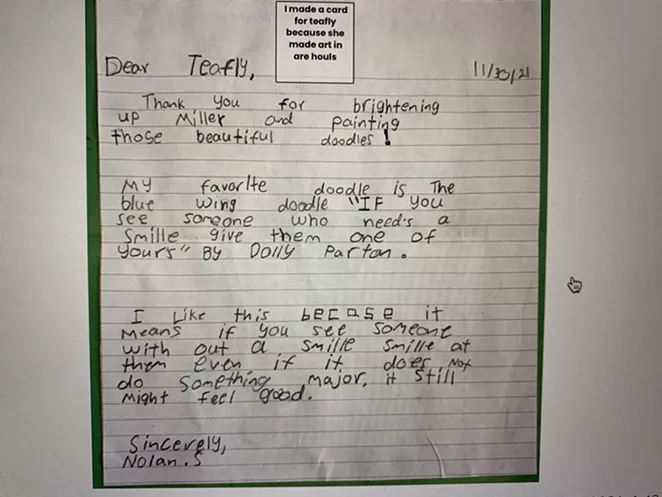 I made a card
for teafly
because she
made art in
are houls
Dear Teafly,
11/30/21
Thank you for brightening
up Miller and painting
those beautiful doodles!
My favorite doodle is The
blue wing doodle "IF you
see someone who need's a
Smille give them one of
yours" BY Dolly Parton.
I Like this becase it
Means if you see someone
with out a smille smille at
them even if it does Not
do something major, it still
Might feel good.
Sincerely,
Nolan.S